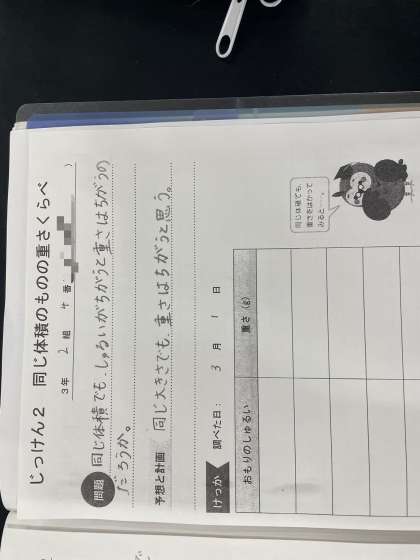 じっけん2 同じ体積のものの重さくらべ
3年 2 組 ケ 番
問題 同じ体積でも、しゅるいがちがうと重さはちがうの
だろうか。
予想と計画 同じ大きさでも、重さはちがうと思う。
けっか 調べた日： 3 月 1 日
おもりのしゅるい 重さ（g）
同じ体積でも、
重さをはかって
みると…。